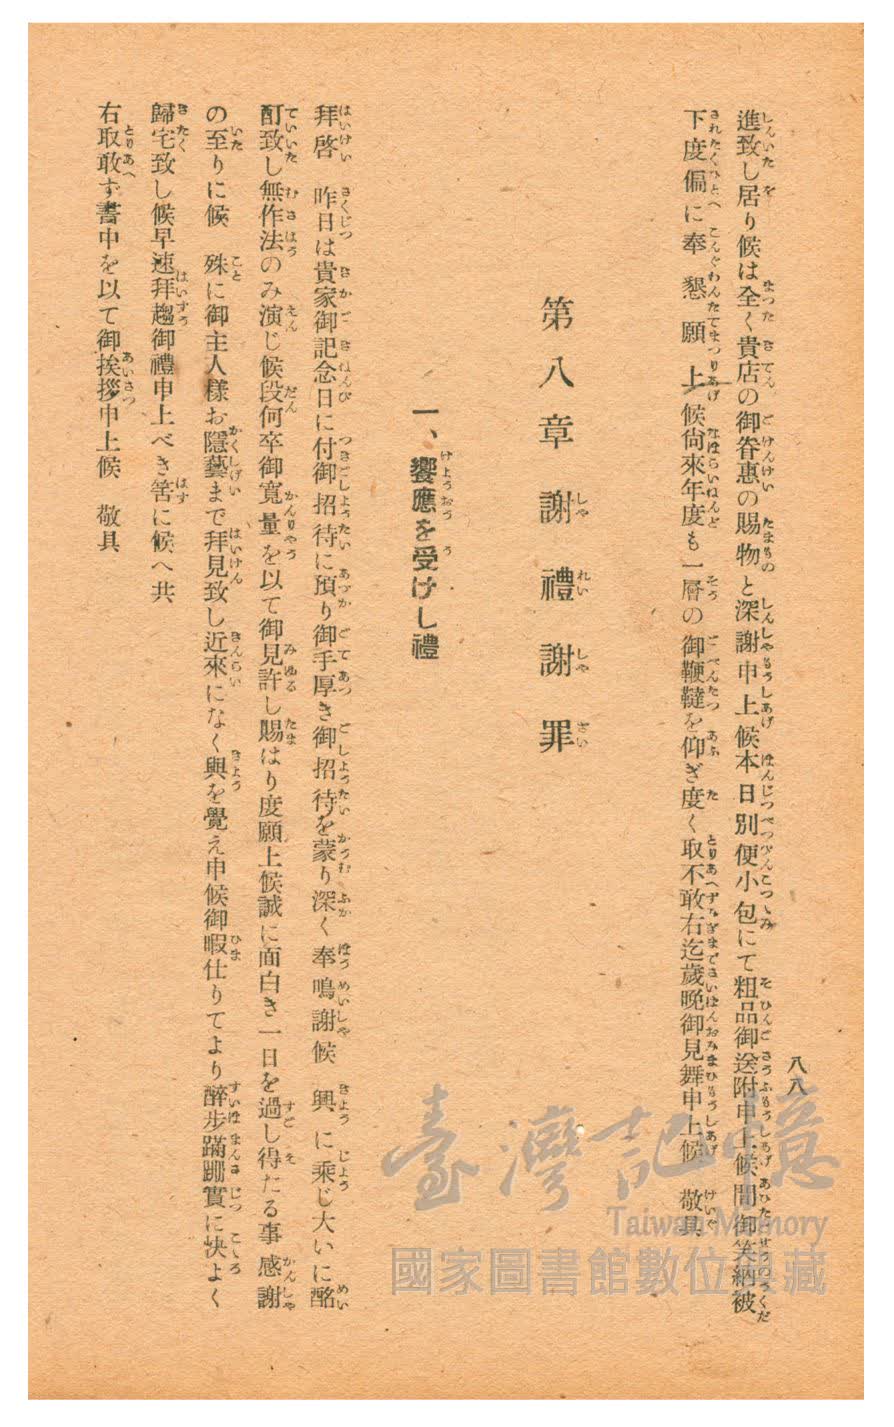 八八
進致し居り候は全く貴店の御眷惠の賜物と深謝申上候本日別便小包にて粗品御送附申上候間御笑納被
下度偏に奉懇願上候尙來年度も一層の御鞭韃を仰ぎ度く取不敢右迄歲晩御見舞申上候　敬具
第八章　謝禮謝罪
一、饗應を受けし禮
拜啓　昨日は貴家御記念日に付御招待に預り御手厚き御招待を蒙り深く奉鳴謝候　興に乘じ大いに酩
酊致し無作法のみ演じ候段何卒御寬量を以て御見許し賜はり度願上候誠に面白き一日を過し得たる事感謝
の至りに候　殊に御主人樣お隱藝まで拜見致し近來になく興を覺え申候御暇仕りてより醉步蹣跚實に快よく
歸宅致し候早速拜趨御禮申上べき筈に候へ共
右取敢ず書中を以て御挨拶申上候　敬具
臺灣記憶
Taiwan Memory
國家圖書館數位典藏